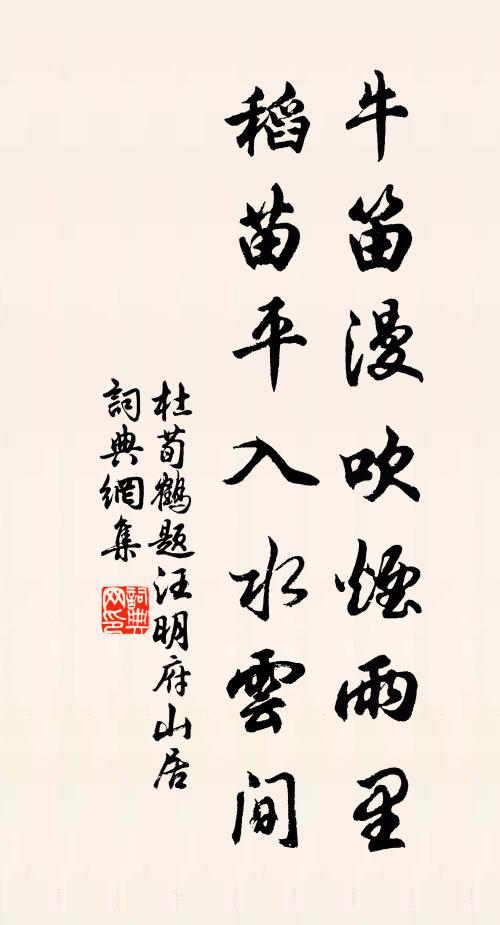 牛笛漫吹煙雨里
稻苗平入水雲間
杜荀鶴題汪明府山居
詞典網集
詞典网印